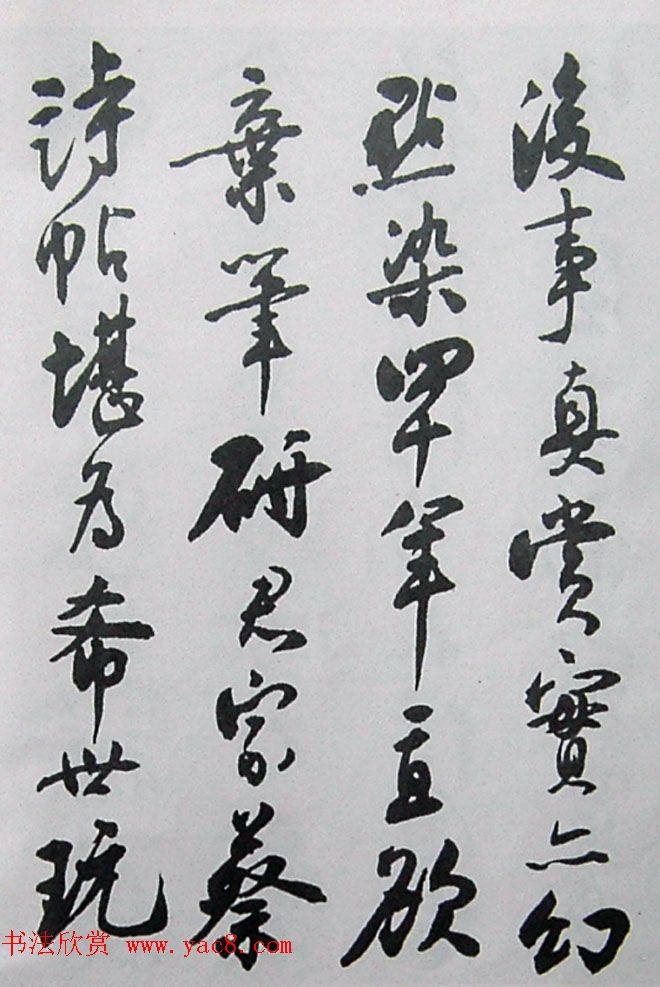 後事真賞實亦幻
點染四十年直欲
棄筆研君家蔡
詩帖堪為希世玩
书法欣赏 www.yac8.com